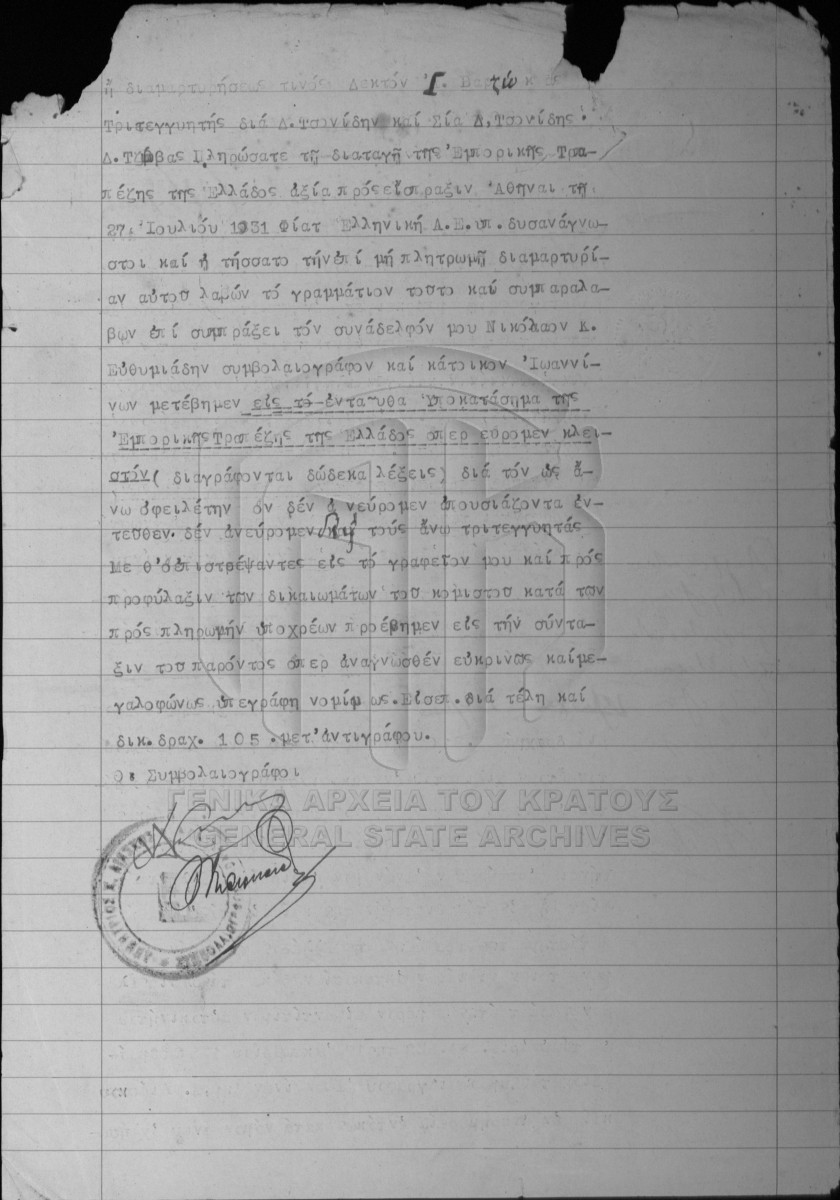 ἤ διαμαρτυρήσεως τινός Δεκτόν Γ.
Τριτεγγυητής διά Δ.Τσονίδην καί Σία Δ,Τσονίδης
Δ.Τζόβας Πληρώσατε τῇ διαταγῇ τῆς Ἐμπορικῆς Τρα-
πέζης τῆς Ἑλλάδος ἀξία πρός εἴσπραξιν Ἀθῆναι τῇ
27, Ἰουλιού 1931 Φίατ Ἑλληνική Α.Ε.υπ.δυσανάγνω-
στοι καί ἠ τήσσατο τήν ἐπί μή πλητρωμῇ διαμαρτυρί-
αν αὐτοῦ λαβών τό γραμμάτιον τοῦτο καί συμπαραλα-
βων ἐπί συμπράξει τόν συνάδελφόν μου Νικόλαον Κ.
Εὐθυμιάδην συμβολαιογράφον καί κάτοικον Ἰωαννί-
νων μετέβημεν εἰς τό ἐνταῦθα Ὑποκατάσημα τῆς
Ἐμπορικῆς Τραπέζης τῆς Ἑλλάδος ὅπερ εὕρομεν κλει-
στόν( διαγράφονται δώδεκα λέξεις) διά τόν ὡς ἄ-
νω ὀφειλέτην ὅν δέν ἀ νεύρομεν ἀπουσιάζοντα ἐν-
τεῦθεν. δέν ἀνεύρομεν τούς ἄνω τριτεγγυητάς
Με θ'ὅ ἐπιστρέψαντες εἰς τό γραφεῖον μου καί πρός
προφύλαξιν τῶν δικαιωμάτων τοῦ κομιστοῦ κατά τῶν
πρός πληρωμήν ὑποχρέων προέβημεν εἰς τήν σύντα-
ξιν τοῦ παρόντος ὅπερ ἀναγνωσθέν εὐκρινῶς καί με-
γαλοφώνως ὑπεγράφη νομίμ ως.Εἰσεπ.διά τέλη καί
δικ.δραχ. 105 .μετ'ἀντιγράφου.
Οἱ Συμβολαιογράφοι
ΓΕΝΙΚΑ ΑΡΧΕΙΑ ΤΟΥ ΚΡΑΤΟΥΣ
GENERAL STATE ARCHIVES